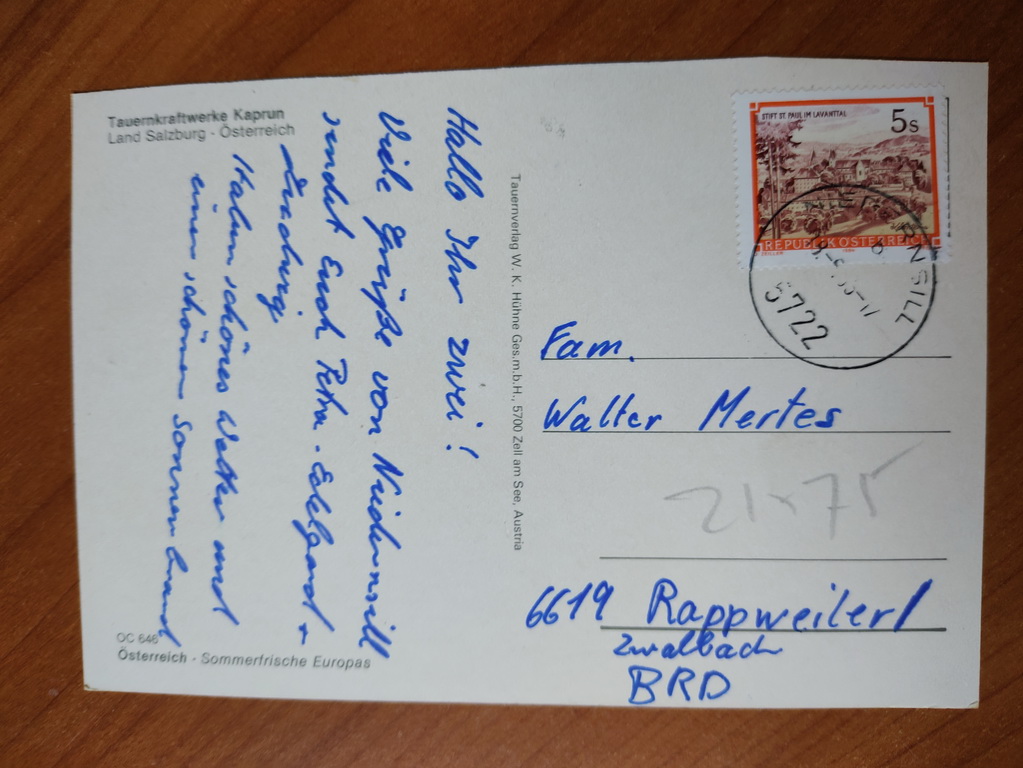 Tauernkraftwerke Kaprun
Land Salzburg - Österreich
Hallo Ihr zwei!
Viele Grüße von Niedernsill
sendet Euch Petra. Edelgard +
Ludwig
Haben schönes Wetter und
einen schönen Sonnenbrand
OC 646
Österreich - Sommerfrische Europas
Tauernverlag W. K. Hühne Ges.m.b.H., 5700 Zell am See, Austria
STIFT ST. PAUL IM LAVANTTAL
5s
REPUBLIK ÖSTERREICH
NIEDERNSILL
5722
Fam.
Walter Mertes
21x75
6619 Rappweiler/
Zwalbach
BRD